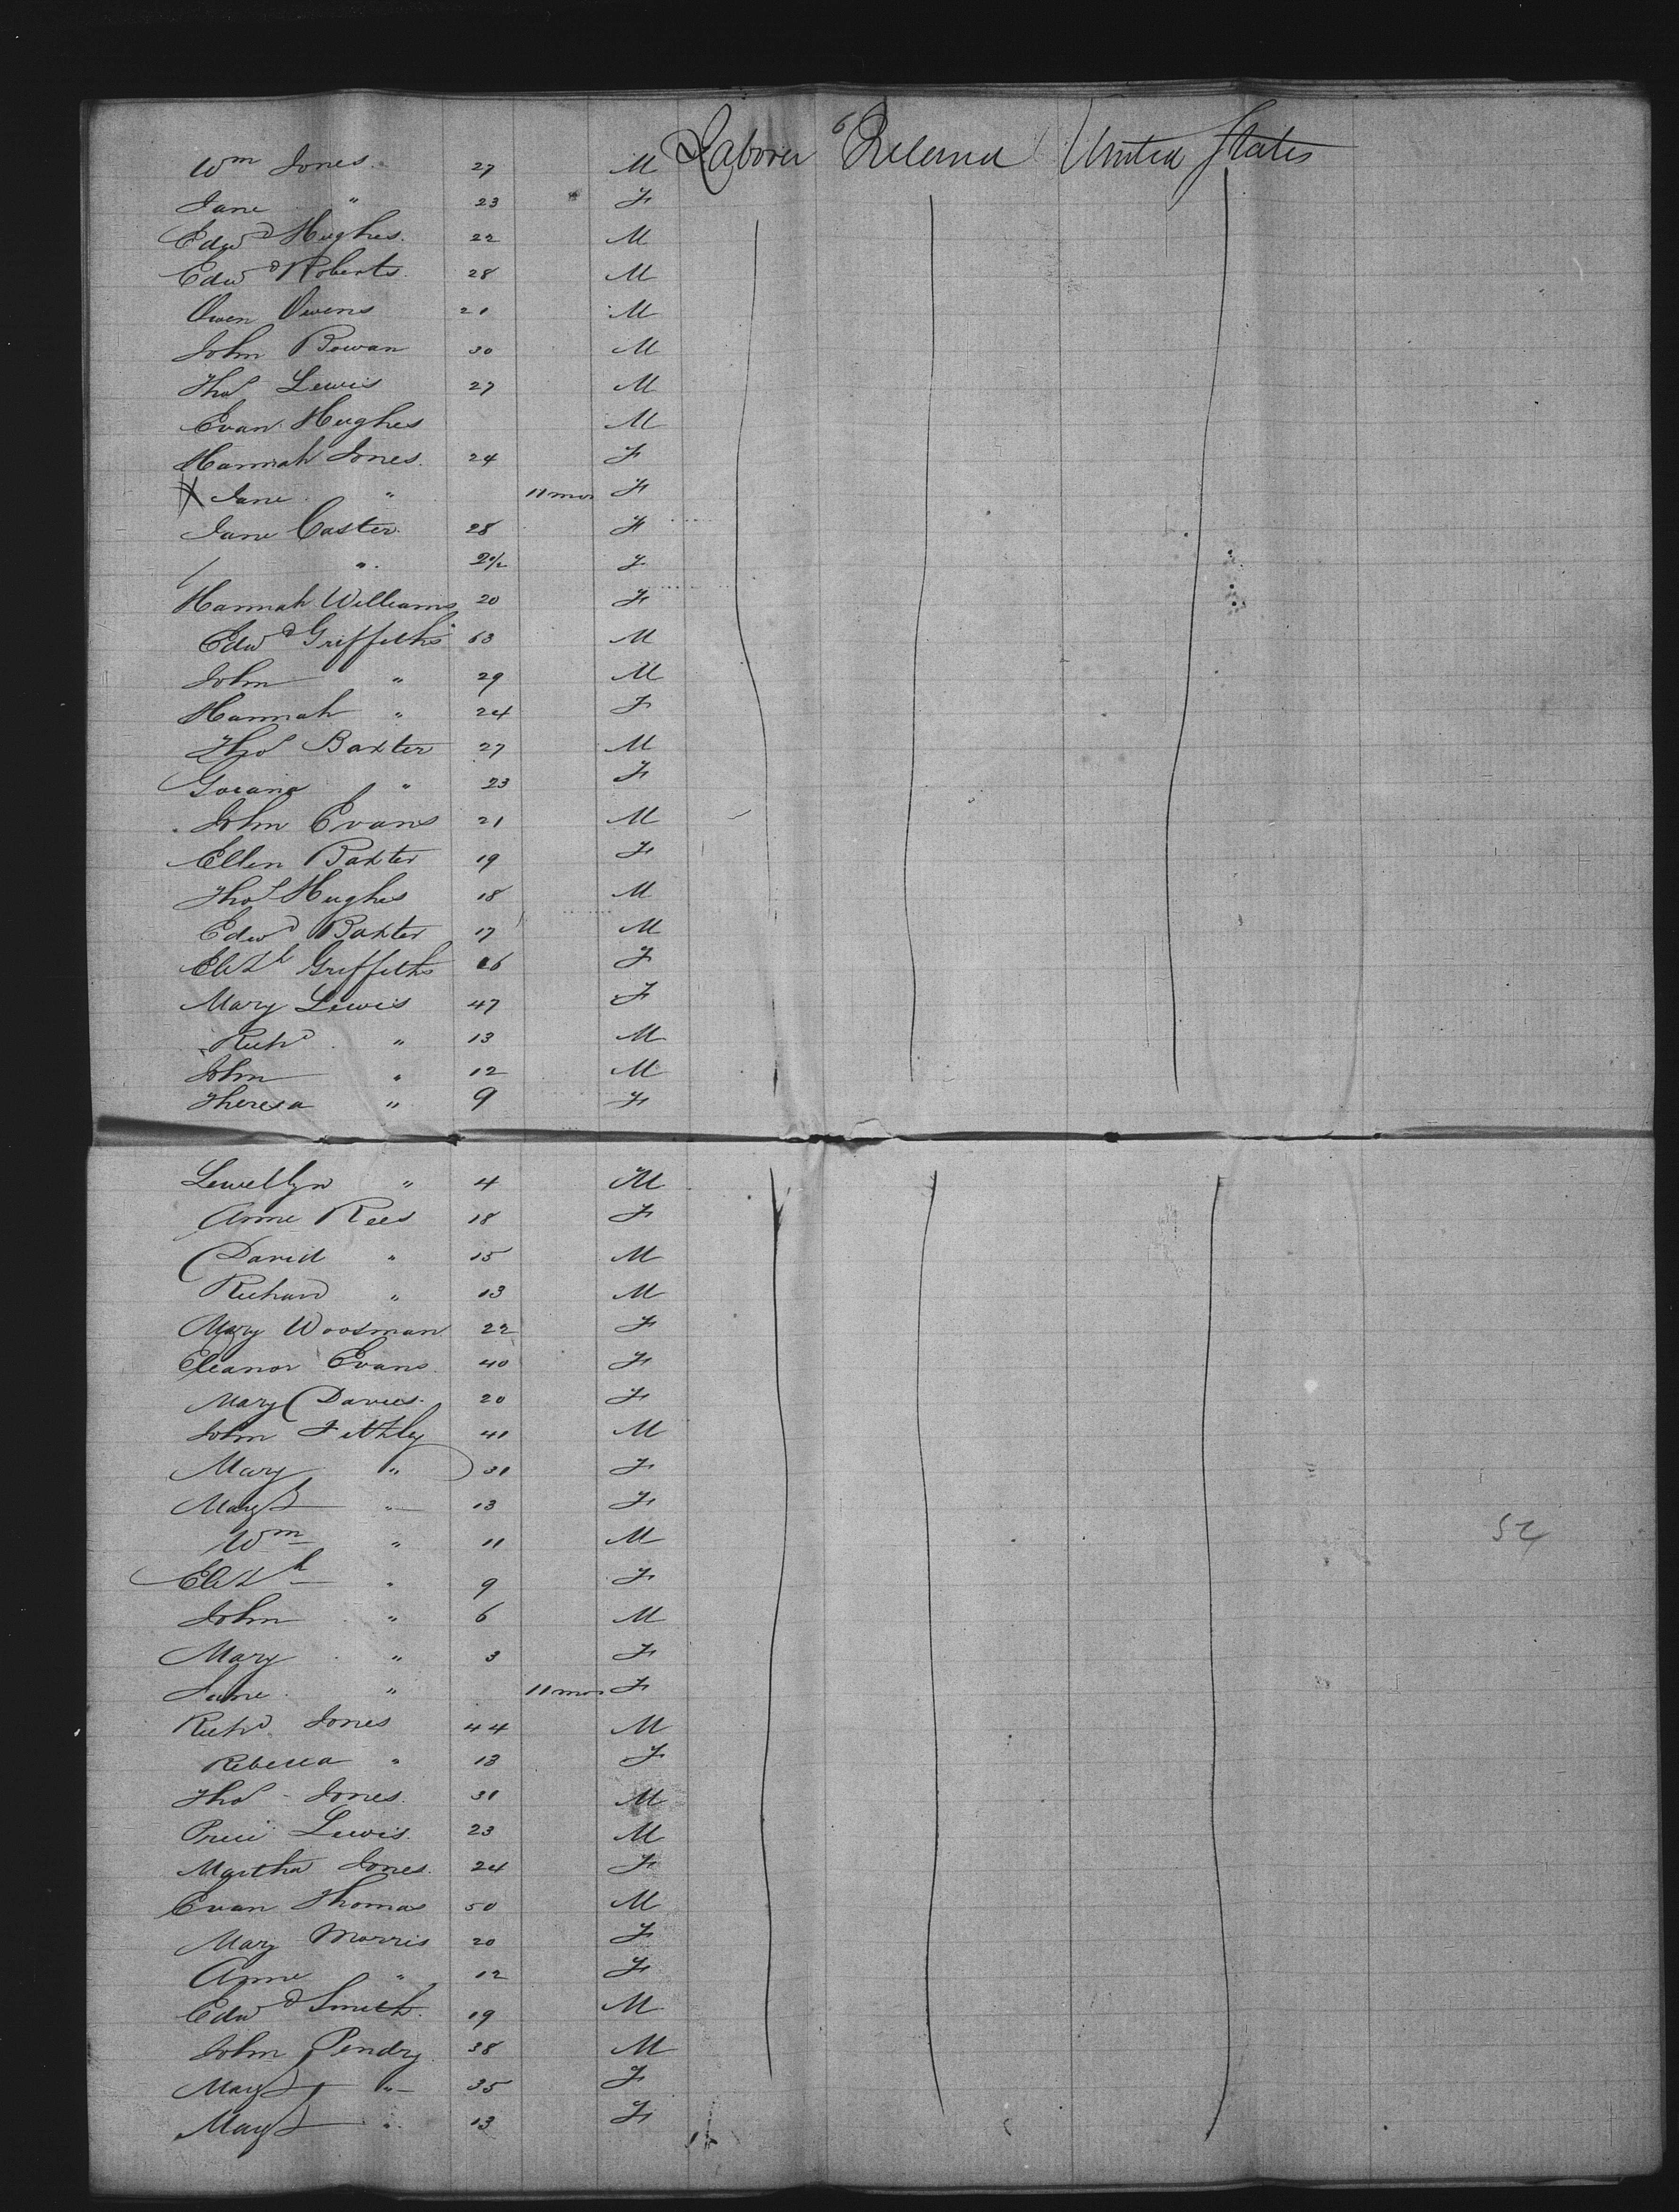 6
Wm Jones 27 M Laborer Ireland United States
Jane " 23 F
Edwd Hughes 22 M
Edwd Roberts 28 M
Owen Owens 21 M
John Bowan 30 M
Thos Lewis 27 M
Evan Hughes M
Hannah Jones 24 F
X Jane " 11 mos F
Jane Caster 28 F
" 2 1/2 F
Hannah Williams 20 F
Edwd Griffiths 63 M
John " 29 M
Hannah " 24 F
Thos Baxter 27 M
" 23 F
John Evans 21 M
Ellen Baxter 19 F
Thos Hughes 18 M
Edwd Baxter 17 M
Elizth Griffiths 26 F
Mary Lewis 47 F
Richd " 13 M
John " 12 M
Theresa " 9 F
Lewellyn " 4 M
Anne Rees 18 F
David " 15 M
Richard " 13 M
Mary Woosman 22 F
Eleanor Evans 40 F
Mary Davies 20 F
John 41 M
Mary " 31 F
Margt " 13 F
Wm " 11 M
52
Elizth " 9 F
John " 6 M
Mary " 3 F
Jane " 11 mos F
Richd Jones 44 M
Rebecca " 13 F
Thos Jones 31 M
Price Lewis 23 M
Martha Jones 24 F
Evan Thomas 50 M
Mary Morris 20 F
Anne " 12 F
Edwd Smith 19 M
John Pendry 38 M
Margt " 35 F
Margt " 13 F